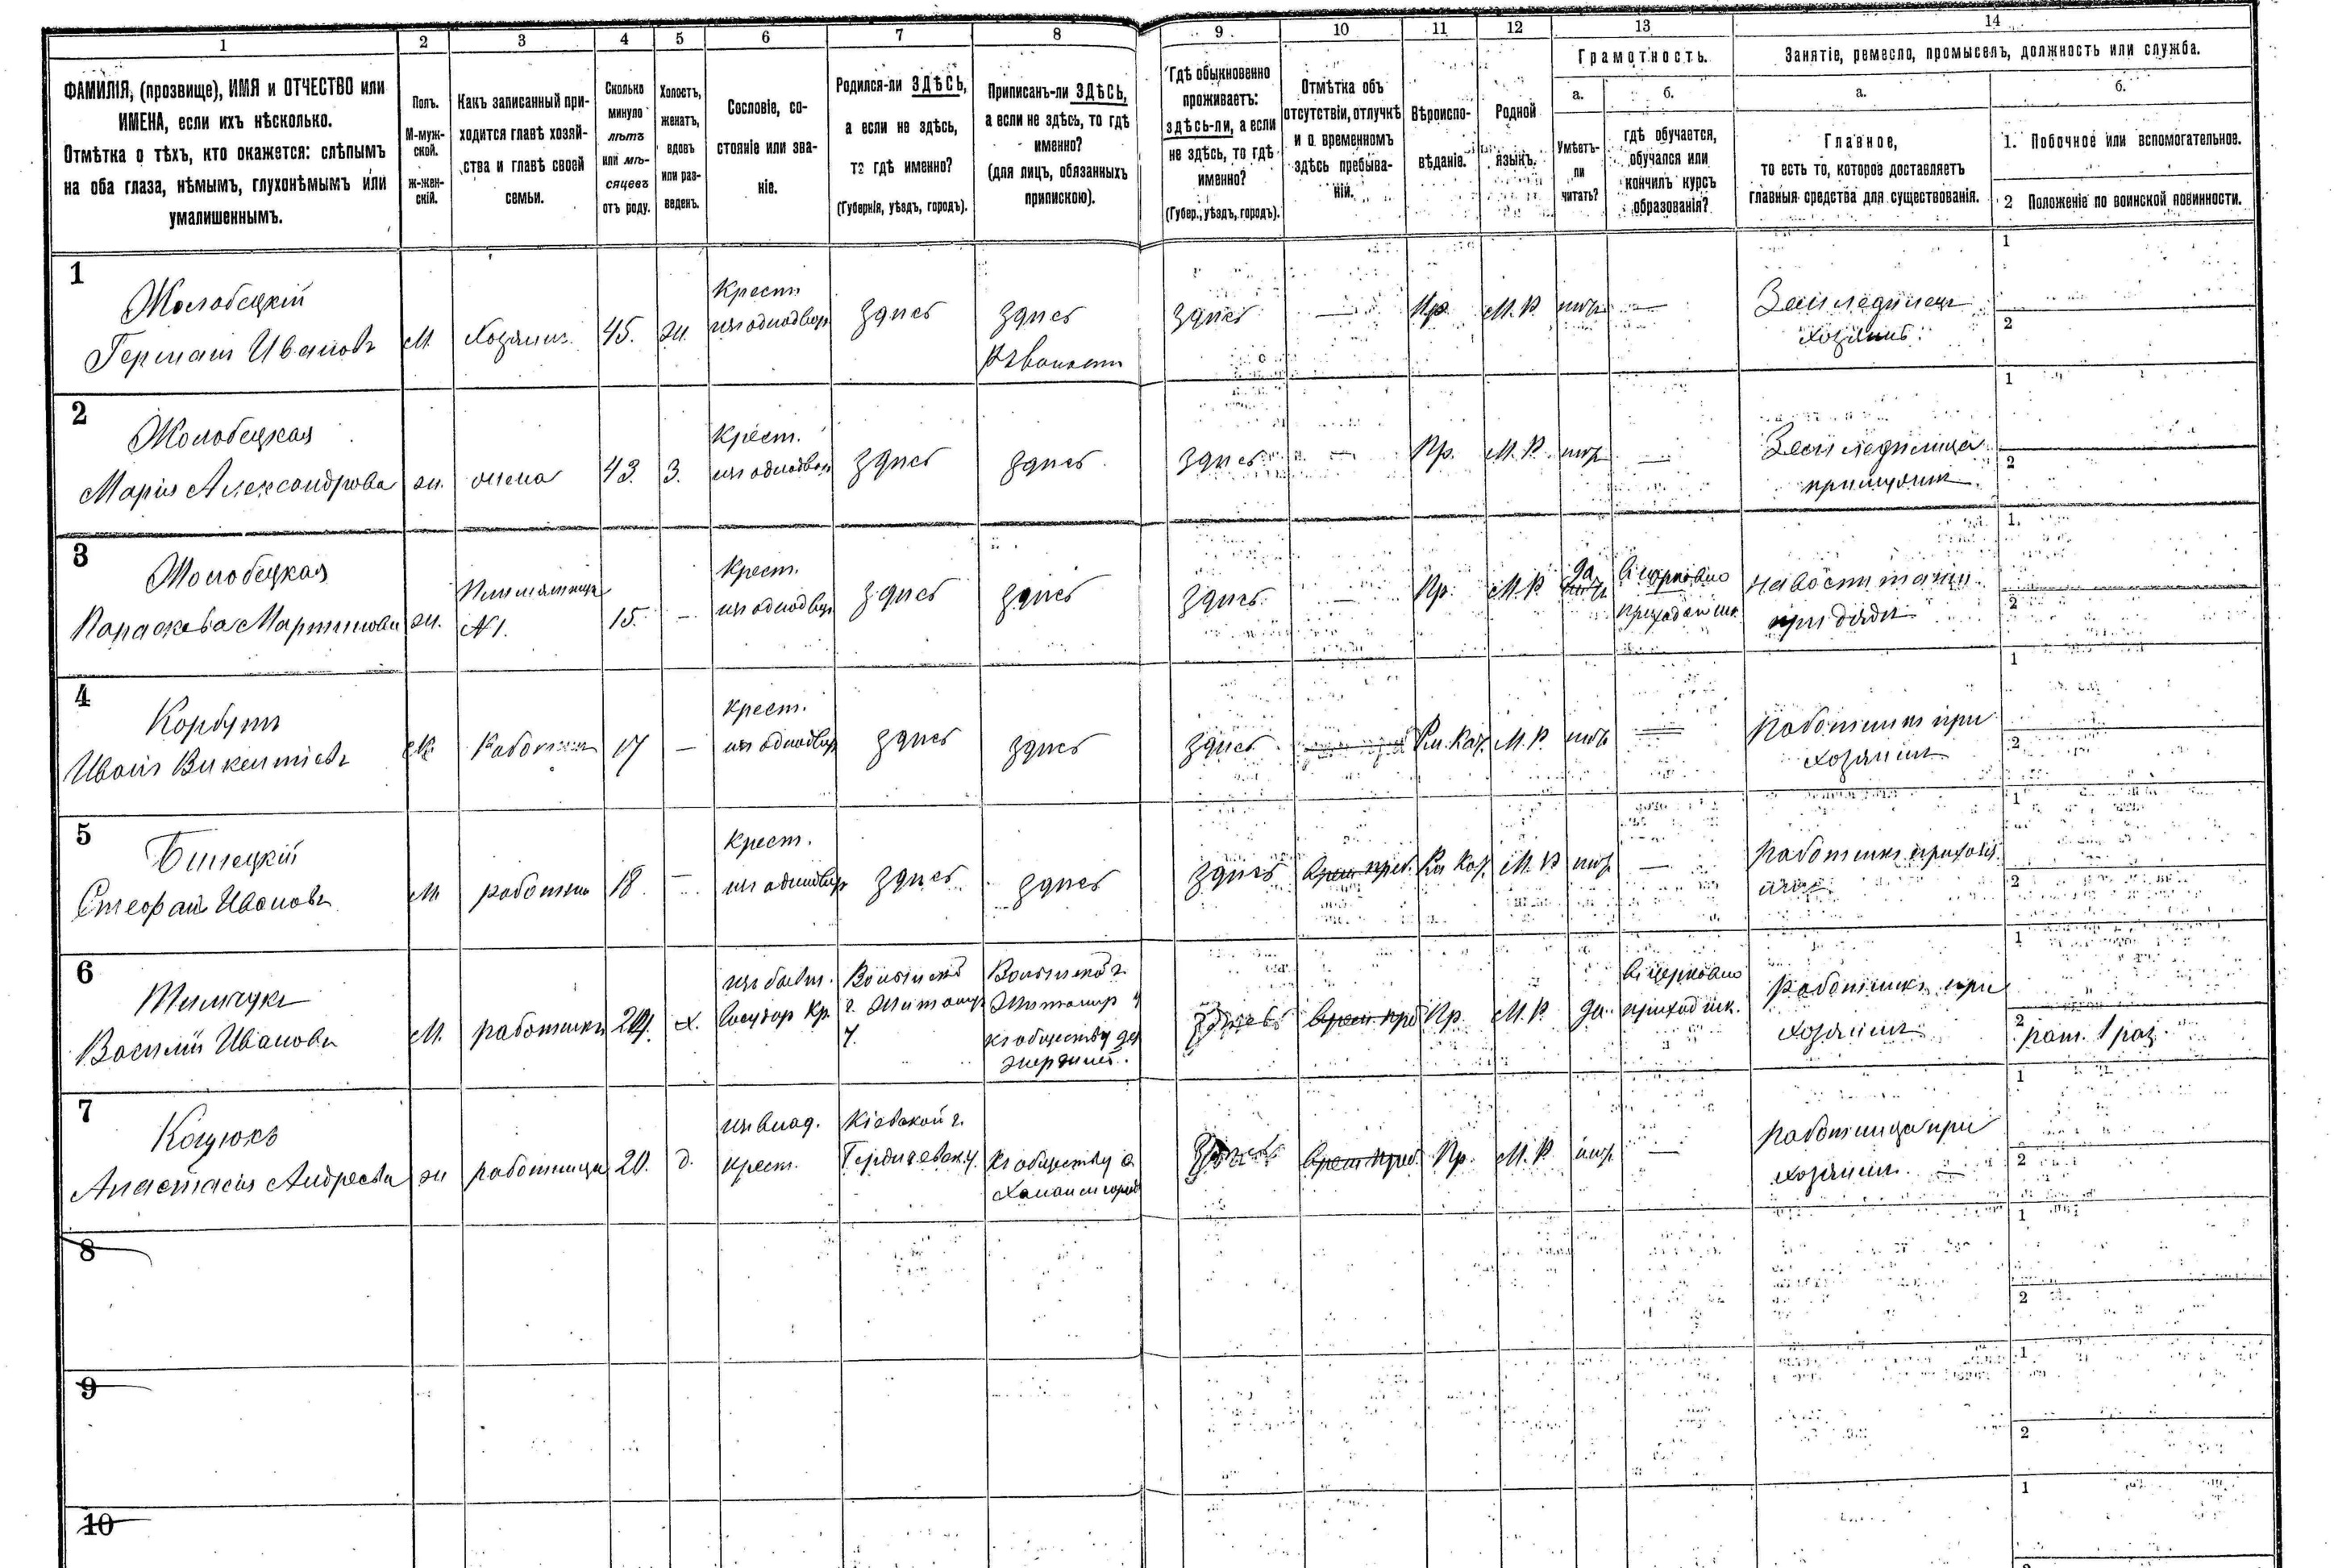 1 2 3 4 5 6 7 8 9 10 11 12 13 14
ФАМИЛІЯ, (прозвище), ИМЯ и ОТЧЕСТВО или
ИМЕНА, если ихъ нѣсколько.
Отмѣтка о тѣхъ, кто окажется: слѣпымъ
на оба глаза, нѣмымъ, глухонѣмымъ или
умалишеннымъ.
Полъ.
М-муж-
ской.
Ж-жен-
скій.
Какъ записанный при-
ходится главѣ хозяй-
ства и главѣ своей
семьи.
Сколько
минуло
лѣтъ
или мѣ-
сяцевъ
отъ роду.
Холостъ,
женатъ,
вдовъ
или раз-
веденъ.
Сословіе, со-
стояніе или зва-
ніе.
Родился-ли ЗДѢСЬ,
а если не здѣсь,
то гдѣ именно?
(Губернія, уѣздъ, городъ).
Приписанъ-ли ЗДѢСЬ,
а если не здѣсь, то гдѣ
именно?
(для лицъ, обязанныхъ
припискою).
Гдѣ обыкновенно
проживаетъ:
здѣсь-ли, а если
не здѣсь, то гдѣ
именно?
(Губер., уѣздъ, городъ).
Отмѣтка объ
отсутствіи, отлучкѣ
и о временномъ
здѣсь пребыва-
ніи.
Вѣроиспо-
вѣданіе.
Родной
языкъ.
Грамотность.
а.
Умѣетъ-
ли
читать?
б.
гдѣ обучается,
обучался или
кончилъ курсъ
образованія?
Занятіе, ремесло, промыселъ, должность или служба.
а.
Главное,
то есть то, которое доставляетъ
главныя средства для существованія.
б.
1. Побочное или вспомогательное.
2 Положеніе по воинской повинности.
1
Жолобецкій
Германъ Ивановъ
М.
Хозяинъ.
45.
ж.
Крест.
изъ однодвор
здѣсь
здѣсь
здѣсь
—
Пр.
М. Р.
нѣтъ
—
Земледѣлецъ
хозяинъ.
1
2
2
Жолобецкая
Марія Александрова
ж.
жена
43.
З.
Крест.
изъ однодвор
здѣсь
здѣсь
здѣсь
—
Пр.
М. Р.
нѣтъ
—
Земледѣлица
1
2
3
Жолобецкая
Параскева Мартинова
ж.
Племянница
№ 1.
15.
—
Крест.
изъ однодвор
здѣсь
здѣсь
здѣсь
—
Пр.
М. Р.
да
въ церковно
приходск. шк.
на воспитаніи
при дядѣ
1.
2
4
Корбутъ
Иванъ Викентіевъ
М.
Работникъ
17
—
крест.
изъ однодвор
здѣсь
здѣсь
здѣсь
Рм. Кат.
М. Р.
нѣтъ
—
Работникъ при
хозяинѣ
1
2
5
Билецкій
Стефанъ Ивановъ
М.
работник
18
—
Крест.
изъ однодвор
здѣсь
здѣсь
здѣсь
врем. преб.
Рм Кат.
М. Р
нѣтъ
—
Работникъ при хозя
инѣ
1
2
6
Тимчукъ
Василій Ивановъ
М.
работникъ
х.
изъ бывш.
Госудор Кр.
Волынской
г. Житомир
у.
Волынской г.
Житомир у
къ обществу дер
здѣсь
врем. преб
Пр.
М. Р.
да.
въ церковно
приход шк.
Работникъ при
хозяинѣ
1
2
рат. 1 раз.
7
Коцюкъ
Анастасія Андреева
ж
работница
20.
д.
изъ влад.
крест.
Кіевской г.
Бердичевск. у.
къ обществу с.
здѣсь
врем. преб.
Пр.
М. Р.
нѣтъ
—
Работница при
хозяинѣ. —
1
2
8
1
2
9
1
2
10
1